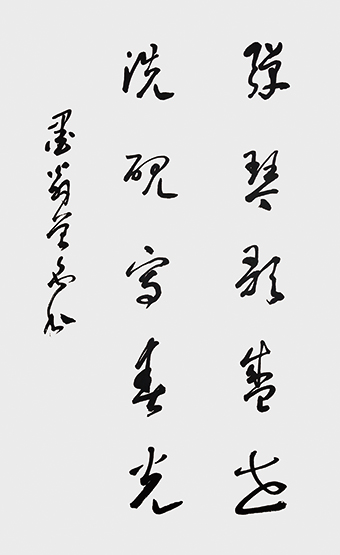 弹琴歌盛世
洗砚写春光
墨翁